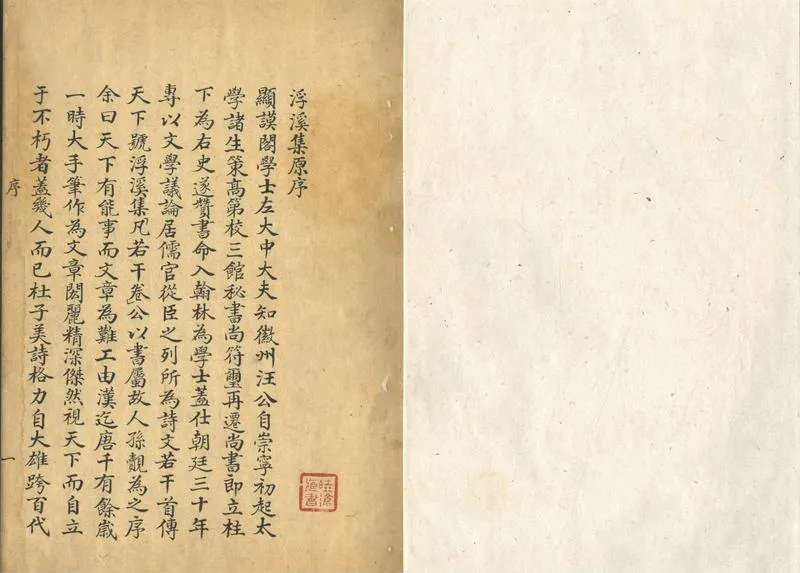 浮溪集原序
顯謨閣學士左大中大夫知徽州汪公自崇寧初起太
學諸生策髙第校三館秘書尚符璽再遷尚書郎立柱
下為右史遂贊書命入翰林為學士蓋仕朝廷三十年
專以文學議論居儒官從臣之列所為詩文若干首傳
天下號浮溪集凡若干卷公以書屬故人孫覿為之序
余曰天下有能事而文章為難工由漢迄唐千有餘嵗
一時大手筆作為文章閎麗精深傑然視天下而自立
于不朽者蓋幾人而已杜子美詩格力自大雄跨百代
序
一